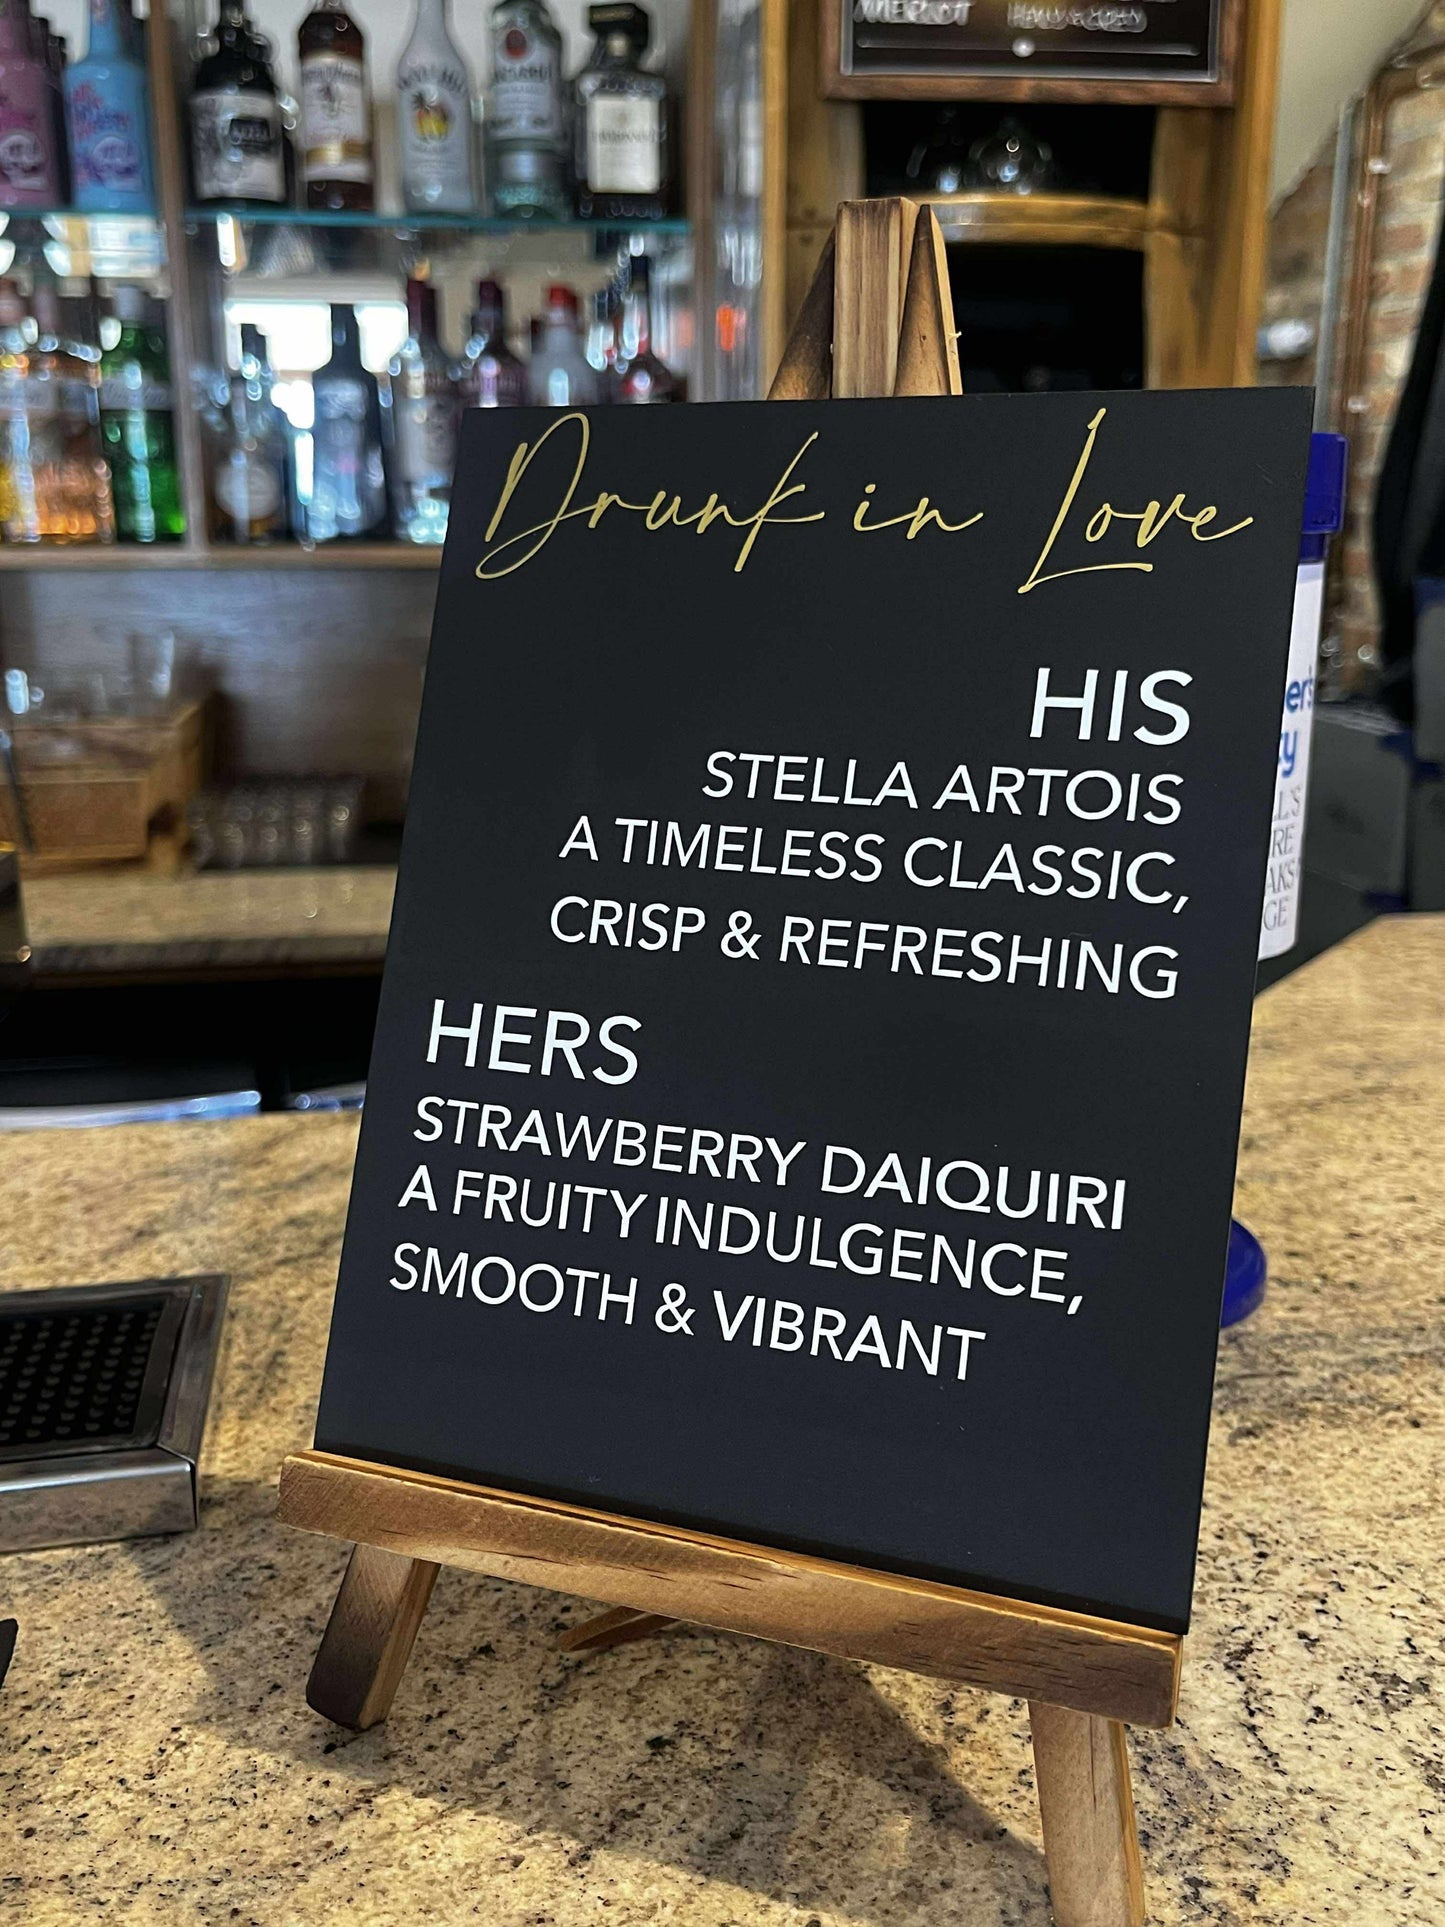 MERLOT
Drunk in Love
HIS
STELLA ARTOIS
A TIMELESS CLASSIC,
CRISP & REFRESHING
HERS
STRAWBERRY DAIQUIRI
A FRUITY INDULGENCE,
SMOOTH & VIBRANT
er's
ty
L'S
RE
AKS
GE